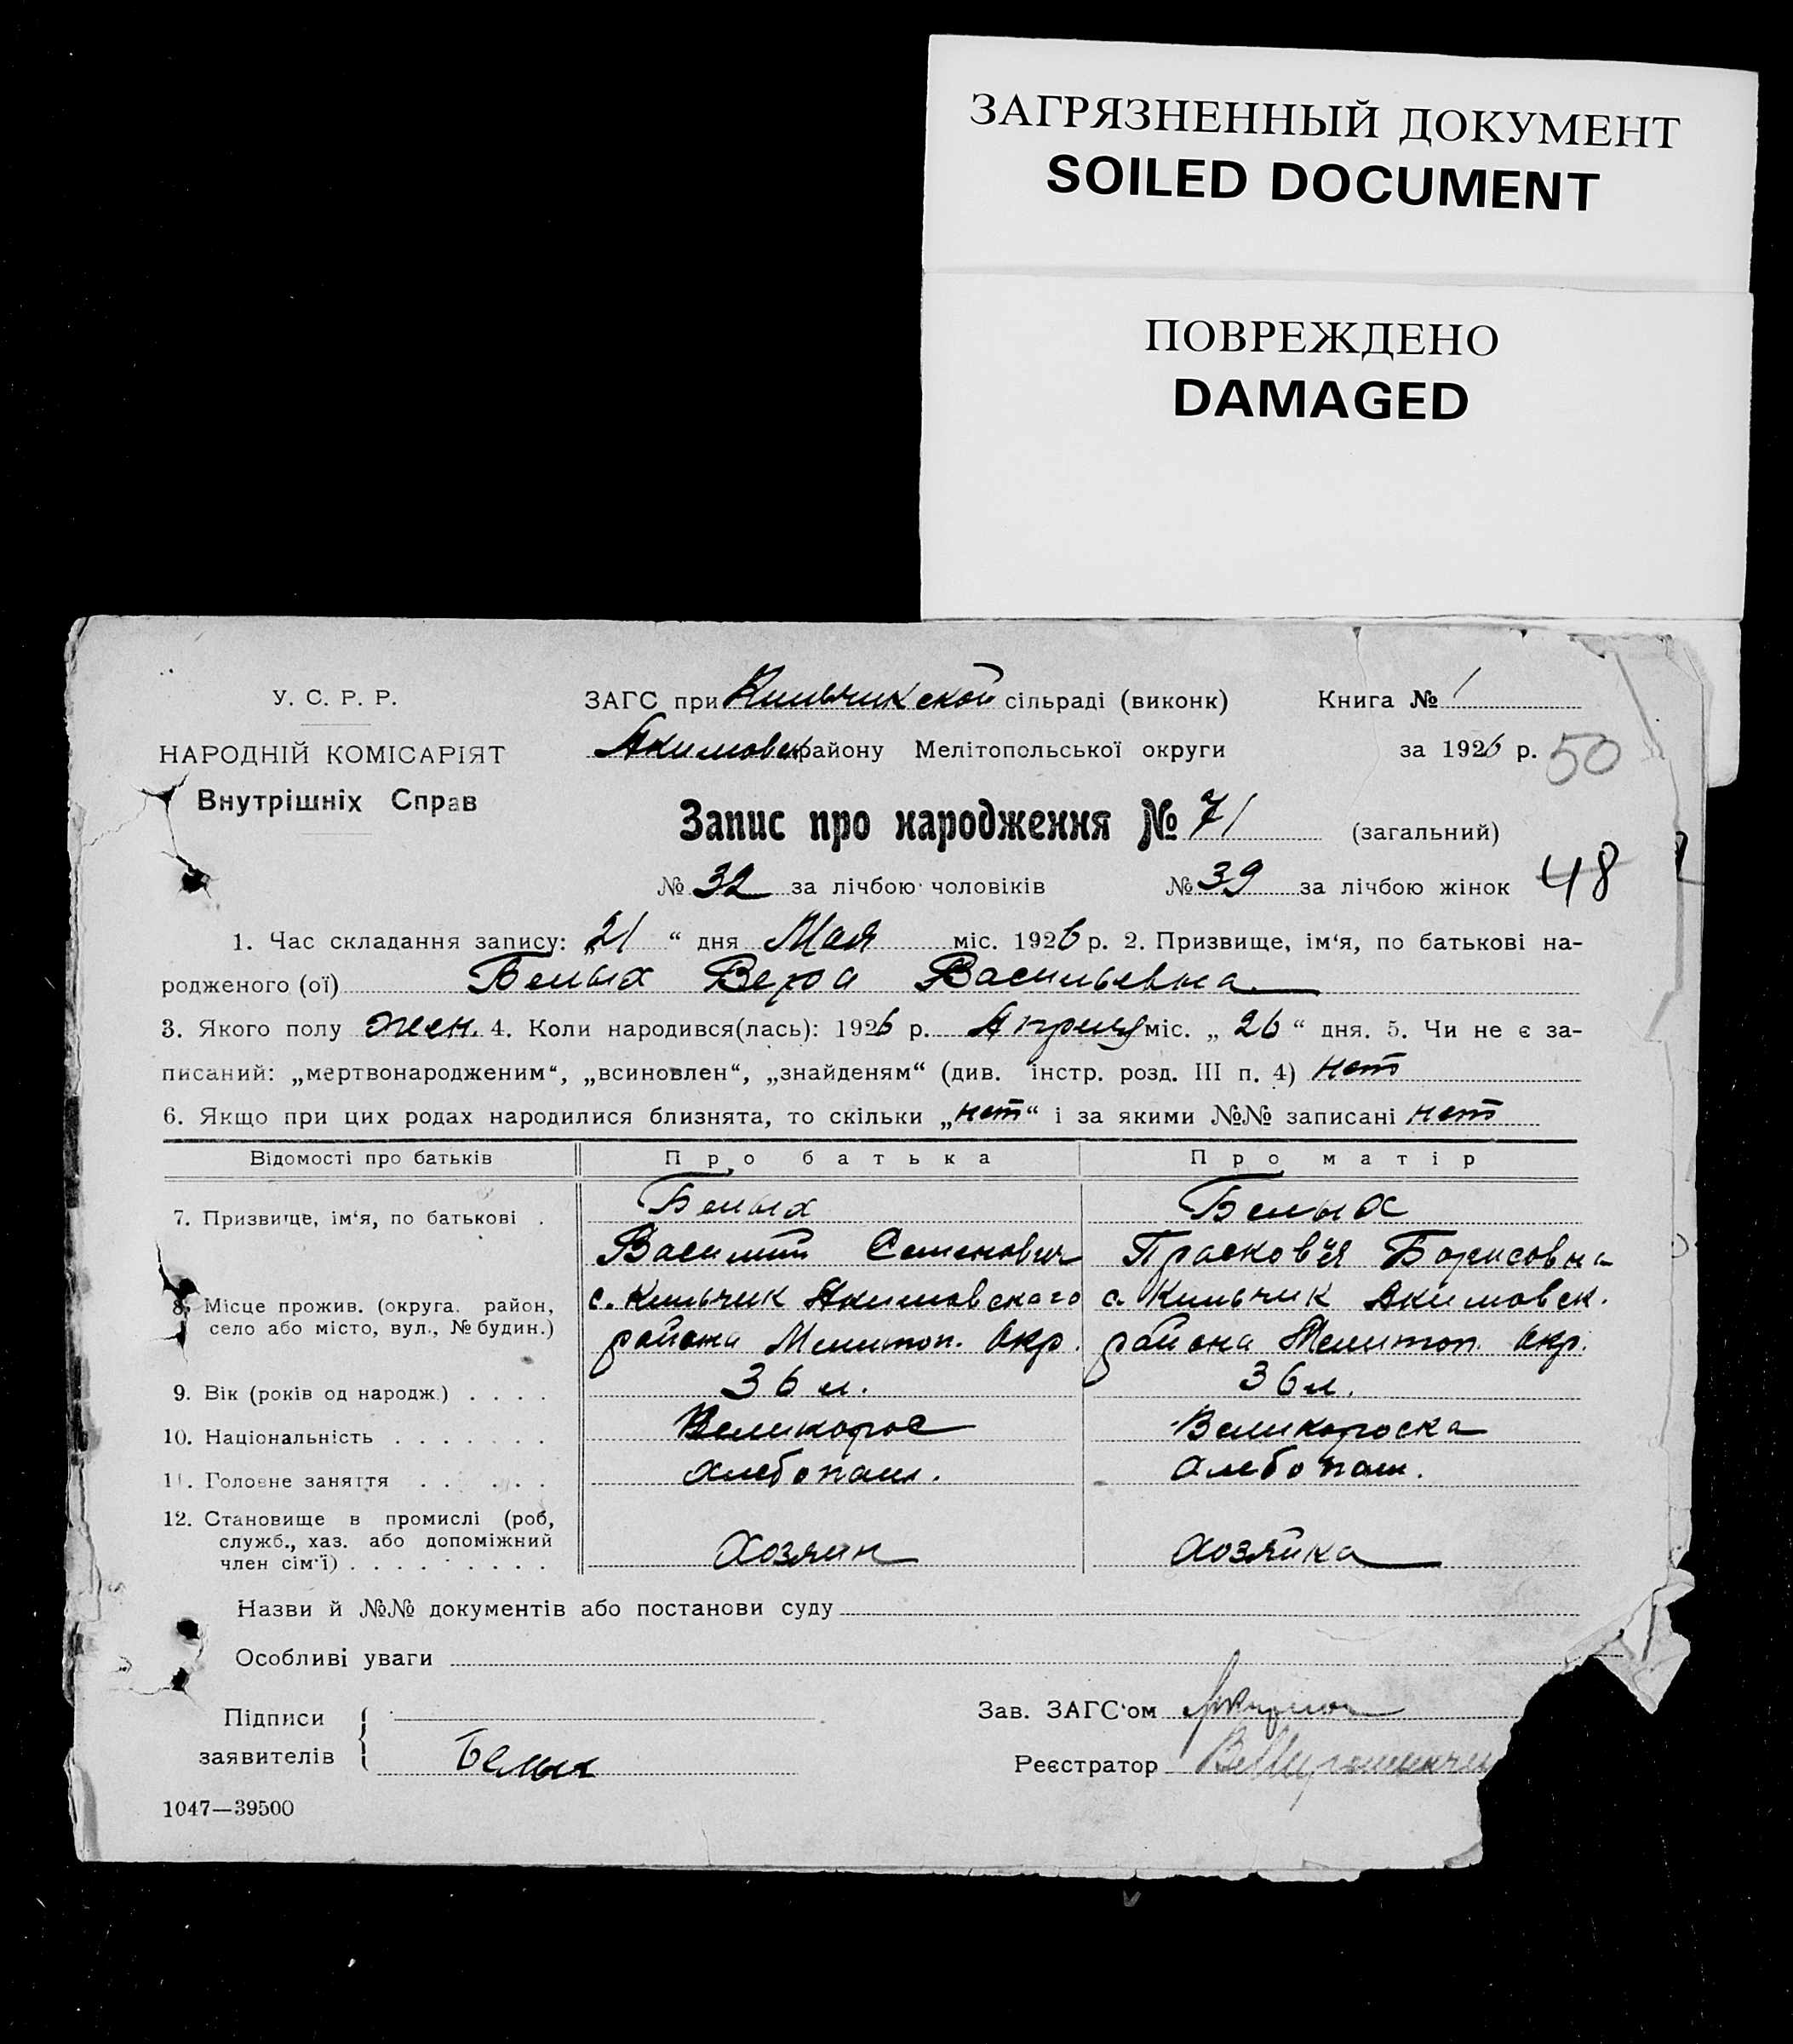 ЗАГРЯЗНЕННЫЙ ДОКУМЕНТ
SOILED DOCUMENT
ПОВРЕЖДЕНО
DAMAGED
У. С. Р. Р.
НАРОДНІЙ КОМІСАРІЯТ
Внутрішніх Справ
ЗАГС при Кильчикской сільраді (виконк)
Акимовск району Мелітопольської округи
Книга № 1
за 1926 р.
50
Запис про народження № 71 (загальний)
№ 32 за лічбою чоловіків № 39 за лічбою жінок
48
1. Час складання запису: „21“ дня Мая міс. 1926 р. 2. Призвище, ім‘я, по батькові на-
родженого (ої) Белых Вера Васильевна
3. Якого полу жен. 4. Коли народився(лась): 1926 р. Апреля міс. „26“ дня. 5. Чи не є за-
писаний: „мертвонародженим“, „всиновлен“, „знайденям“ (див. інстр. розд. III п. 4) нет
6. Якщо при цих родах народилися близнята, то скільки „нет“ і за якими №№ записані нет
Відомості про батьків Про батька Про матір
7. Призвище, ім‘я, по батькові . Белых Белых
Василий Семенович Прасковья Борисовна
8. Місце прожив. (округа. район, с. Кильчик Акимовского с. Кильчик Акимовск.
село або місто, вул., № будин.) района Мелитоп. Окр. района Мелитоп. Окр.
9. Вік (років од народж.) . . . . 36 л. 36 л.
10. Національність . . . . . . . Великорос Великороска
11. Головне заняття . . . . . . Хлебопаш. Хлебопаш.
12. Становище в промислі (роб,
служб., хаз. або допоміжний
член сім‘ї) . . . . . . . . Хозяин Хозяйка
Назви й №№ документів або постанови суду
Особливі уваги
Підписи
заявителів
Белых
Зав. ЗАГС‘ом
Реєстратор
1047—39500